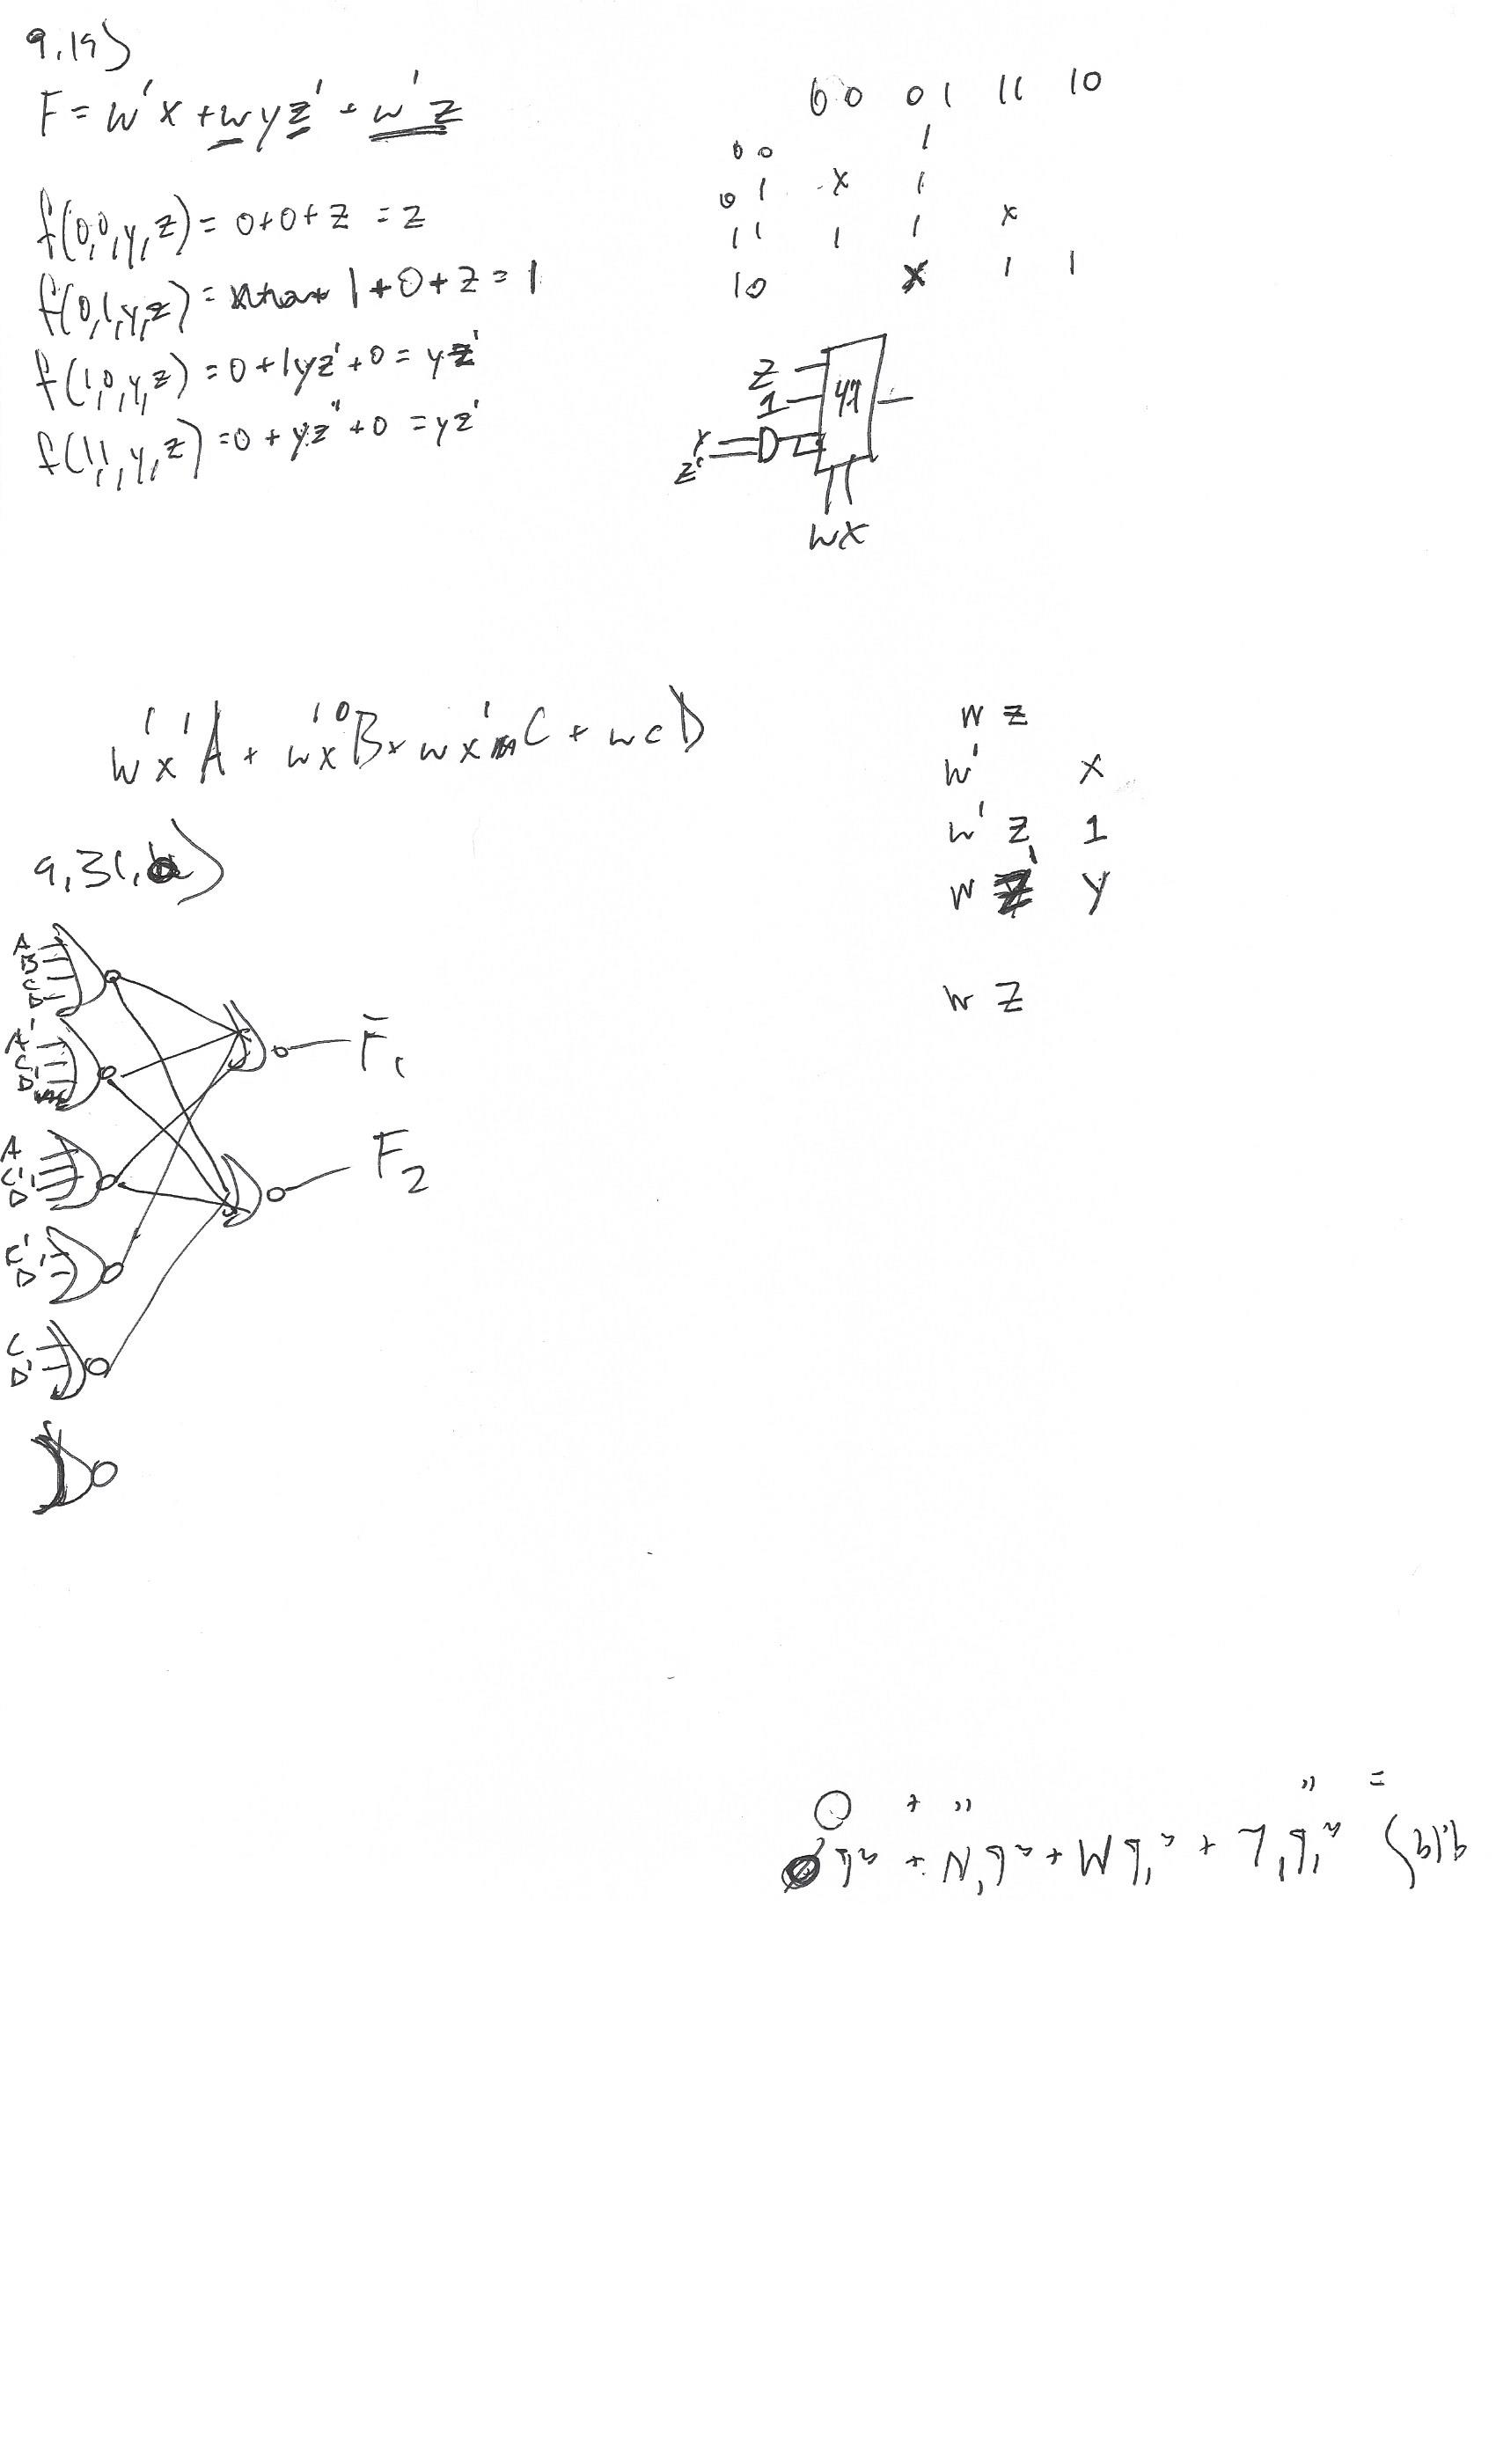 9.19)
F = w'x + wyz' + w'z
f(0,0,y,z) = 0+0+z = z
f(0,1,y,z) = 1+0+z = 1
f(1,0,y,z) = 0+1yz'+0 = yz'
f(1,1,y,z) = 0+yz'+0 = yz'
00 01 11 10
00 1
01 x 1
11 1 1 x
10 x 1 1
z
1
y
z'
wx
w'x'A + w'xB + wx'C + wcD
w z
w' x
w' z 1
w z' y
w z
9.31.a)
A
B
C
D
A'
C
D'
A
C'
D
C'
D'
C
D'
F1
F2